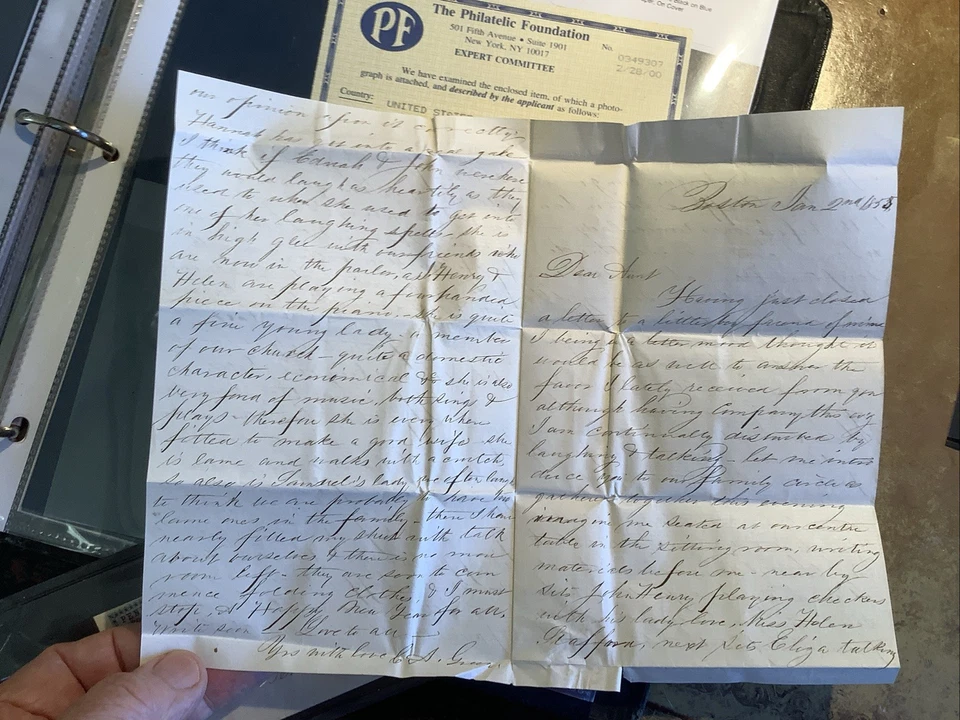 Black on Blue
On Cover
PF
The Philatelic Foundation
501 Fifth Avenue • Suite 1901
New York, NY 10017
EXPERT COMMITTEE
No.
0349307
2/28/00
We have examined the enclosed item, of which a photo-
graph is attached, and described by the applicant as follows:
Country:
UNITED STATES
our opinion upon it correctly.
Hannah has got into a real gale
I think if Ednah & John were here
they would laugh as heartily as they
used to when she used to get into
one of her laughing spells. she is
in high glee with our friends who
are now in the parlor, as Henry &
Helen are playing a four handed
piece on the piano. she is quite
a fine young lady, a member
of our church - quite a domestic
character, economical & she is also
very fond of music, both sings &
plays - therefore she is every where
fitted to make a good wife she
is lame and walks with a crutch,
so also is Samuel's lady, we often laugh
to think we are probably to have two
lame ones in the family - then I have
nearly filled my sheet with talk
about ourselves & there is no more
room left - they are soon to com
mence folding clothes & I must
stop, A Happy New Year for all,
Write soon Love to all
Yrs with love
Boston Jan 2nd
Dear Aunt
Having just closed
a letter to a friend of mine
I being in a letter mood thought it
would be as well to answer the
favor I lately received from you
although having company this evg
I am continually disturbed by
laughing & talking - let me intro
duce you to our family circle as
gathered together this evening
imagine me seated at our centre
table in the sitting room, writing
materials before me - near by
sits John Henry playing checkers
with his lady love, Miss Helen
next sits Eliza talking